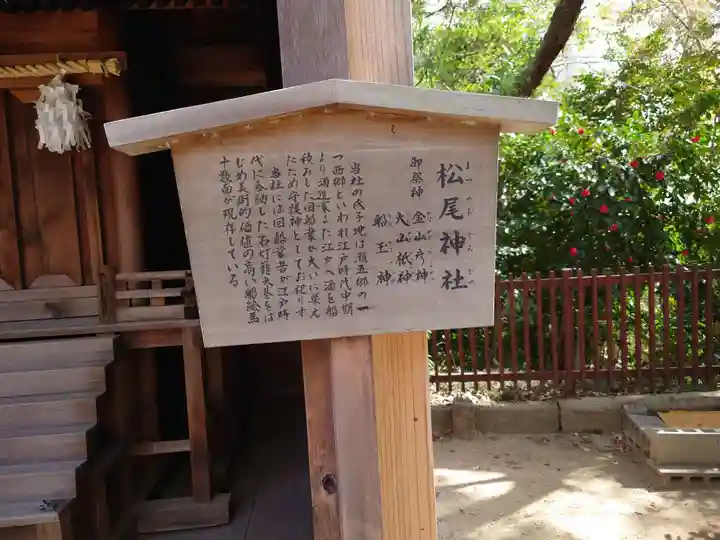 松尾神社
まつのおじんじゃ
御祭神
金山彦神
大山祇神
船玉神
当社の氏子地は灘五郷の一
つ西郷といわれ江戸時代中期
より酒造業また江戸へ酒を船
積みした回船業が大いに栄え
たため守護神としてお祀りす
当社には回船業者が江戸時
代に奉納した石灯籠天基をは
じめ美術的価値の高い船絵馬
十数面が現存している